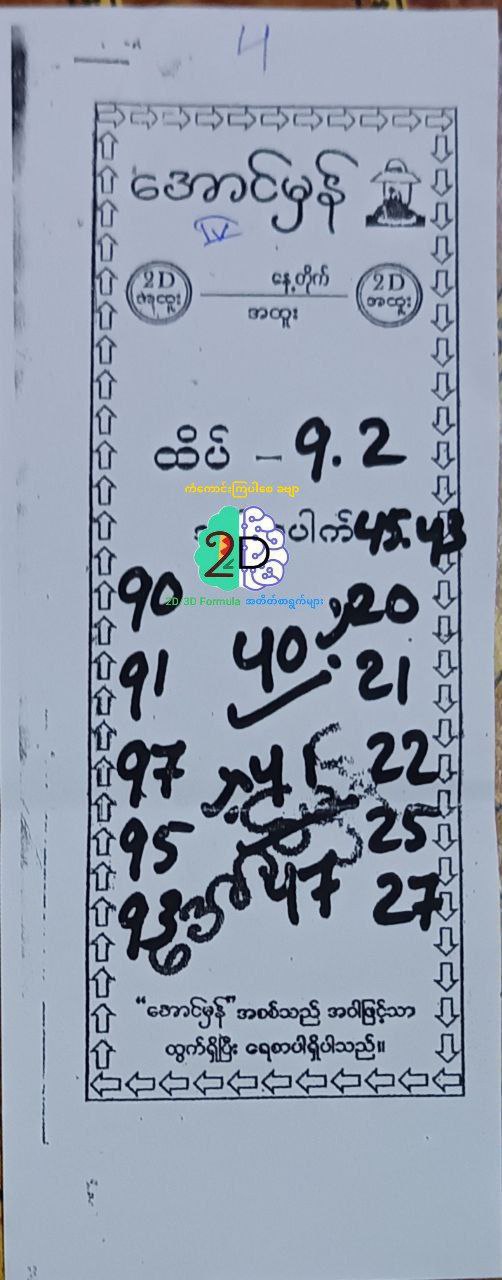 4
အောင်မှန်
IV
2D နေ့တိုက် 2D
အထူး အထူး အထူး
ထိပ် - 9.2
ကံကောင်းကြပါစေ ခဗျာ
ပါက် 45. 43
2D
2D 3D Formula အတိတ်စာရွက်များ
90 40 20
91 21
97 41 22
95 25
93 47 27
"အောင်မှန်" အစစ်သည် အဝါဖြင့်သာ
ထွက်ရှိပြီး ရေစာပါရှိပါသည်။